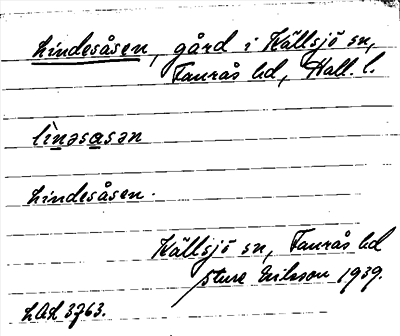 Lindesåsen, gård i Källsjö sn,
Faurås hd, Hall. l.
lìnəsasən
Lindesåsen.
Källsjö sn, Faurås hd
Sture Eriksson 1939.
LAL 3763.